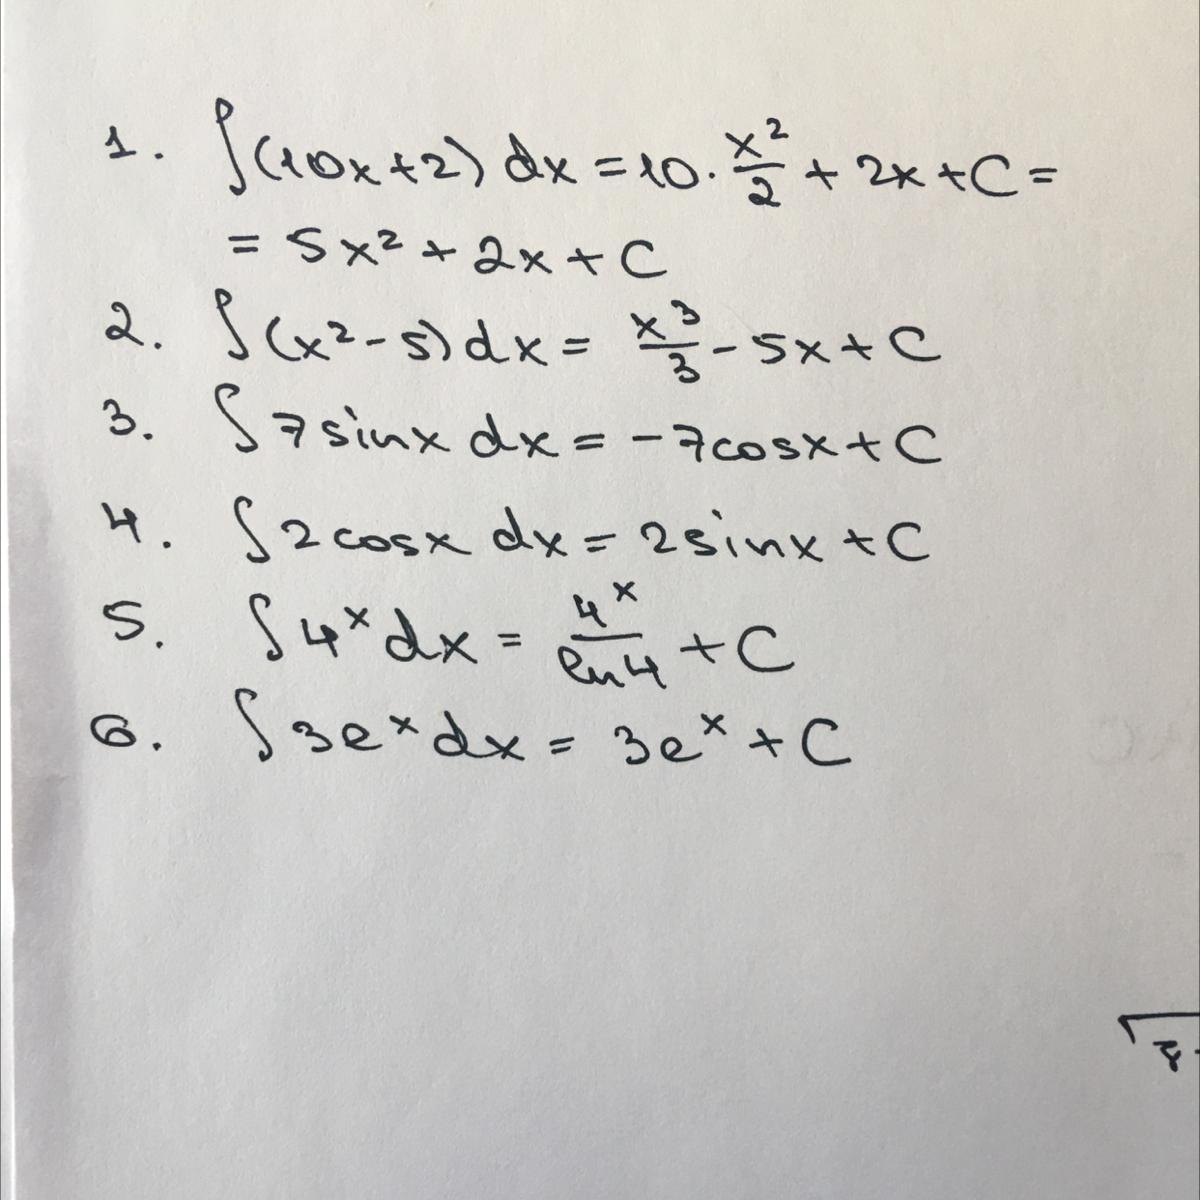 1. ∫(10x+2) dx = 10 · x²/2 + 2x + C =
= 5x² + 2x + C
2. ∫(x² - 5) dx = x³/3 - 5x + C
3. ∫ 7 sinx dx = - 7cosx + C
4. ∫ 2 cosx dx = 2 sinx + C
5. ∫ 4ˣ dx = 4ˣ/ln4 + C
6. ∫ 3eˣ dx = 3eˣ + C